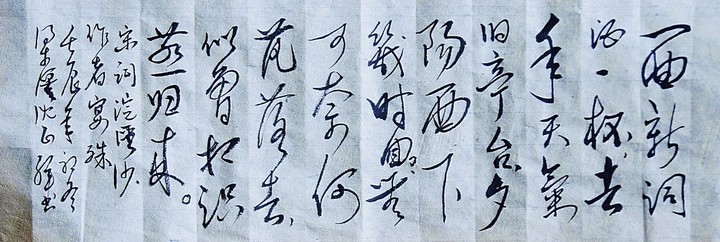 一曲新词
酒一杯去
年天氣
旧亭台夕
陽西下
幾时回無
可奈何
花落去
似曾相识
燕归来。
宋词浣溪沙
作者宴殊
壬辰年初冬
梁溪沈正书